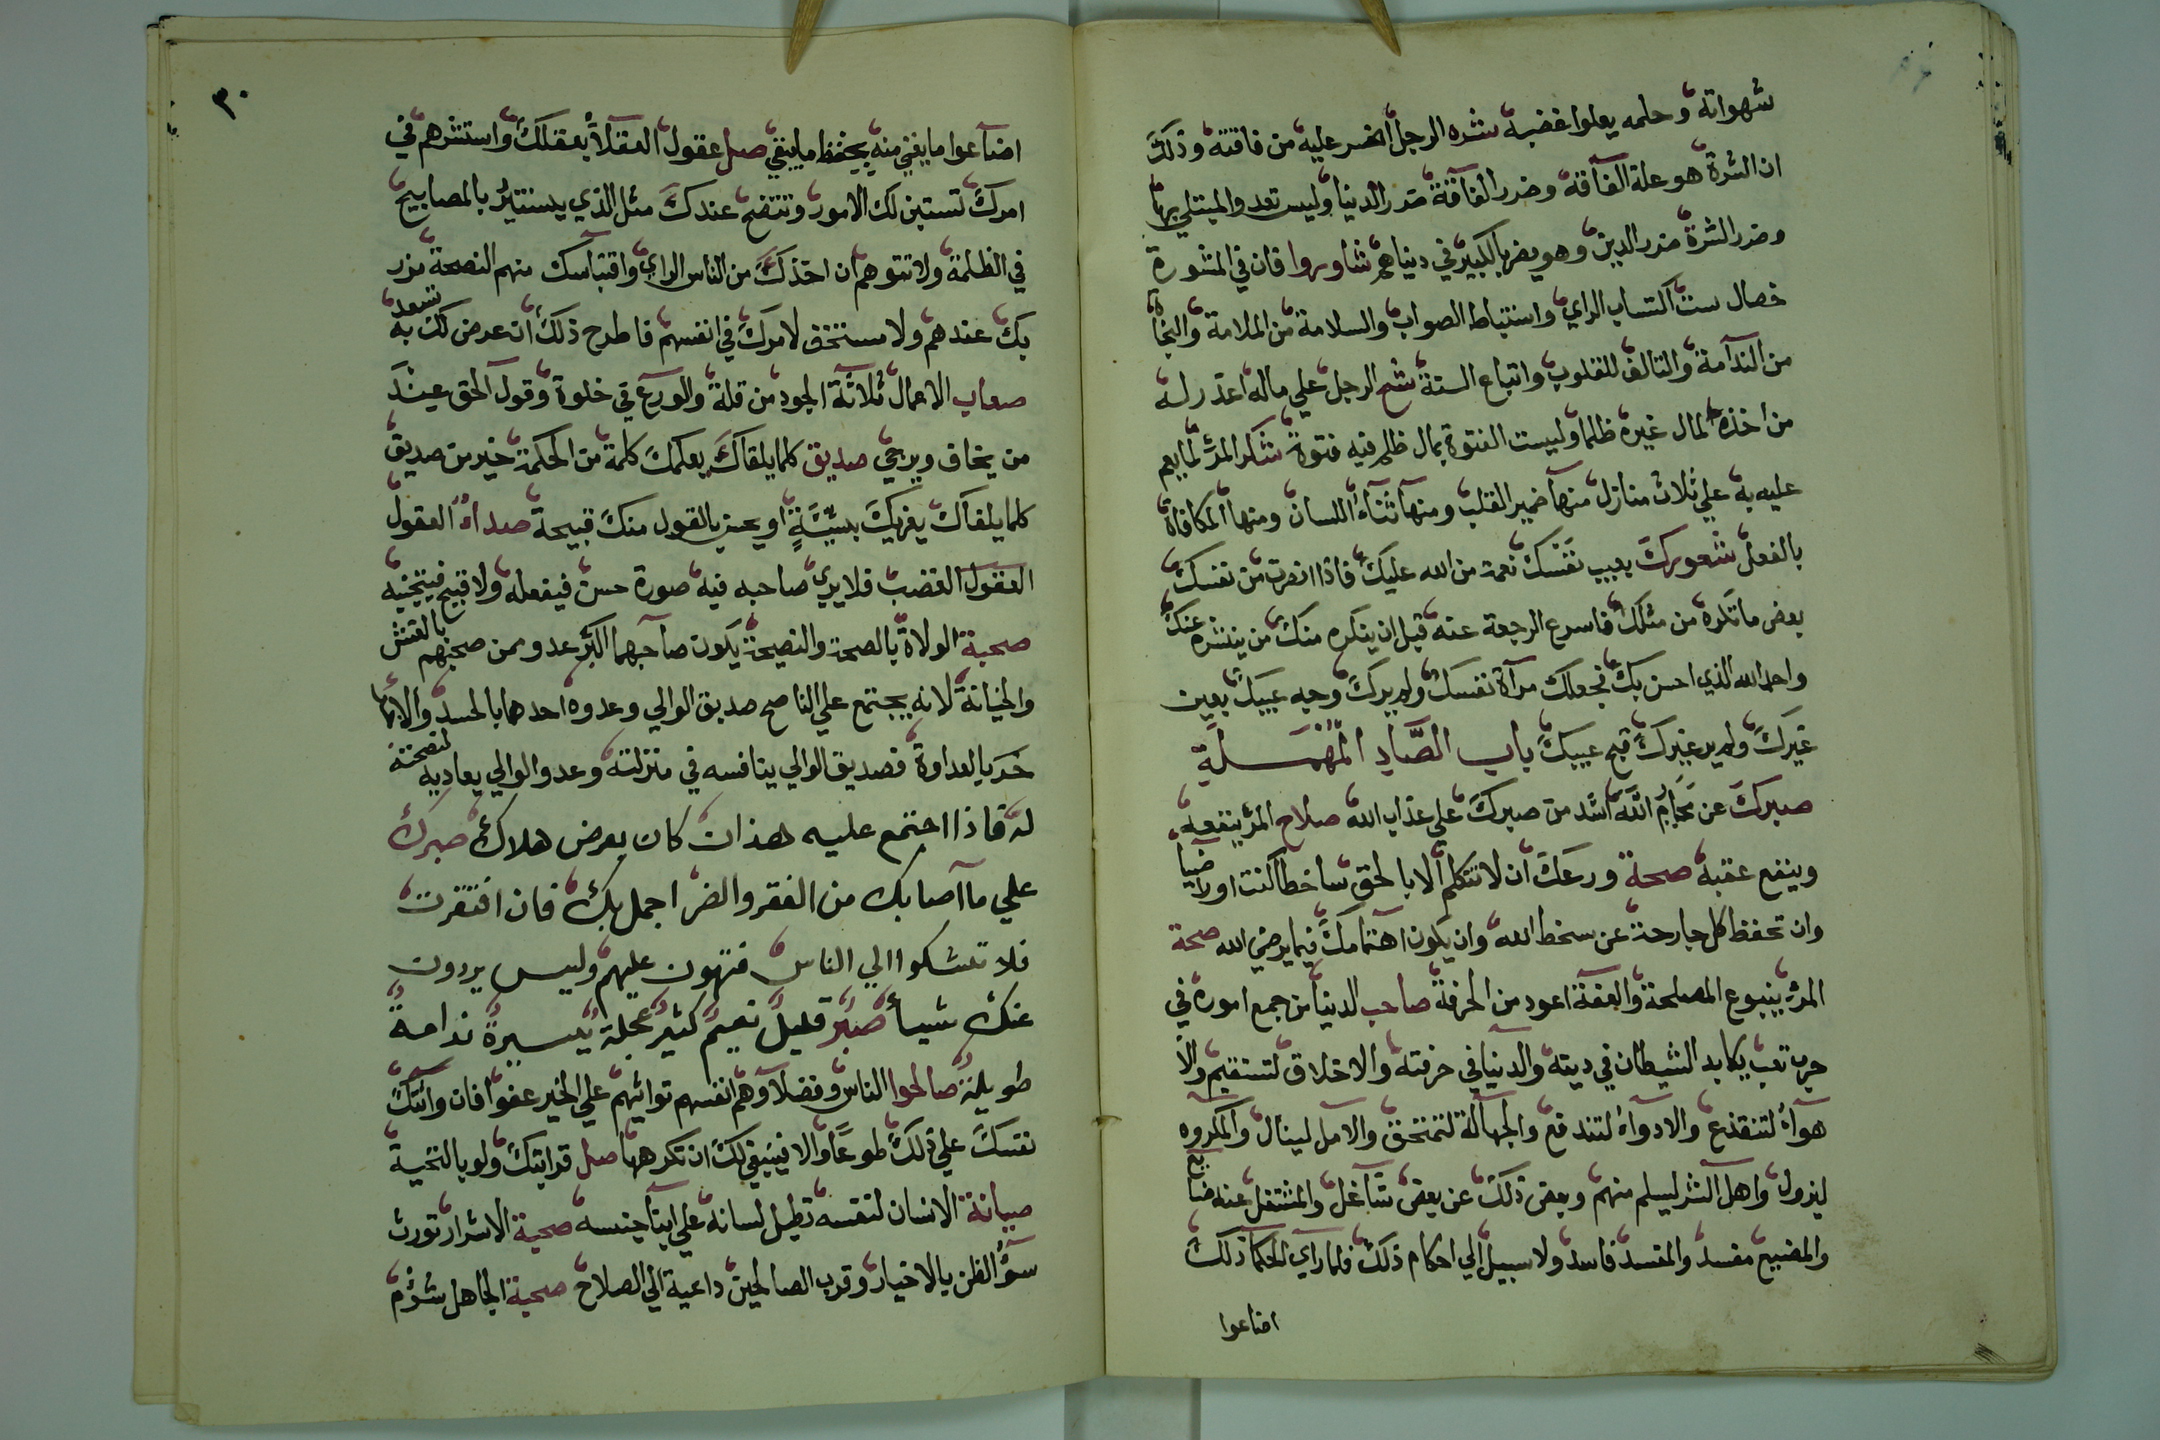 شهواته وحلمه يعلوا غضبه شره الرجل اضر عليه من فاقته وذلك
ان الشرة هو علة الفآقة وضرر الفاقة ضرر الدنيا وليس تعد والمبتلي بها
وضرر الشرة ضرر الدين وهو يضر بالكبير في دنياهم شاوروا فان في المشورة
خصال ست اكتساب الراي واستنباط الصواب والسلامة من الملامة والنجاة
من الندآمة والتالف للقلوب واتباع السنة شح الرجل علي ماله اعذر له
من اخذه لمال غيره ظلما وليست الفتوة بمال ظلم فيه فتوة شكر المرء لما يعم
عليه به علي ثلاث منازل منها ضمير القلب ومنها ثناء اللسان ومنها المكافاة
بالفعل شعورك بعيب نفسك نعمة من الله عليك فاذا انعرت من نفسك
بعض ما تكره من مثلك فاسرع الرجعة عنه قبل ان ينكره منك من ينشره عنك
واحمد الله الذي احسن بك فجعلك مرآة نفسك ولم يرك وجه عيبك بعين
غيرك ولم ير غيرك قبح عيبك باب الصاد المهملة
صبرك عن محارم الله اشد من صبرك علي عذاب الله صلاح المرء ينفعه
وينفع عقبه صحة ورعك ان لا تتكلم الا بالحق ساخطا كنت او راضيا
وان تحفظ كل جارحة عن سخط الله وان يكون اهتمامك فيما يرضي الله صحة
المرء ينبوع المصلحة والعفة اعود من الحرفة صاحب الدنيا من جمع اموره في
حرب تعب يكابد الشيطان في دينه والدنيا في حرفته والاخلاق لتستقيم والا
هوآء لتنقذع والادوآء لتندفع والجهالة لتمتحق والآمل لينال والمكروه
ليزول واهل الشر ليسلم منهم وبعض ذلك عن بعض شآغل والمشتغل عنه ضايع
والمضيع مفسد والمفسد فاسد ولا سبيل الي احكام ذلك فلما راي الحكما ذلك
اضاعوا
٣٠
اضآعوا ما يغني منه بحفظ ما يبقي صل عقول العقلآ بعقلك واستشرهم في
امرك تستبين لك الامور وتتضح عندك مثل الذي يستنير بالمصابيح
في الظلمة ولا تتوهم ان اخذك من الناس الراي واقتباسك منهم النصحة مزر
بك عندهم ولا مستخف لامرك في انفسهم فاطرح ذلك ان عرض لك به تسعد
صعاب الاعمال ثلاثة الجود من قلة والورع في خلوة وقول الحق عند
من يخاف ويرجي صديق كلما يلقاك يعلمك كلمة من الحكمة خير من صديق
كلما يلقاك يغريك بسيئة او يحسن بالقول منك قبيحة صدآء العقول
العقول الغضب فلا يري صاحبه فيه صورة حسن فيفعله ولا قبيح فيتجنبه
صحبة الولاة بالصحة والنصيحة يكون صاحبهما اكثر عدو ممن صحبهم بالغش
والخيانة لانه يجتمع علي الناصح صديق الوالي وعدوه احدهما بالحسد والآ
خر بالعداوة فصديق الوالي ينافسه في منزلته وعدو الوالي يعاديه لنصحته
له فاذا اجتمع عليه هذان كان بعرض هلاك صبرك
علي ما اصابك من الفقر والضر اجمل بك فان افتقرت
فلا تشكوا الي الناس فتهون عليهم وليس يردون
عنك شيأ صبر قليل نعيم كثير عجلة يسيرة ندامة
طويلة صالحوا الناس وفضلآوهم انفسهم توائيهم علي الخير عفوا فان واتتك
نفسك علي ذلك طوعا والا فينبغي لك ان تكرهها صل قرابتك ولو بالتحية
صيانة الانسان لنفسه تطيل لسانه علي ابنآ جنسه صحبة الاشرار تورث
سوء الظن بالاخيار وقرب الصالحين داعية الي الصلاح صحبة الجاهل شؤم